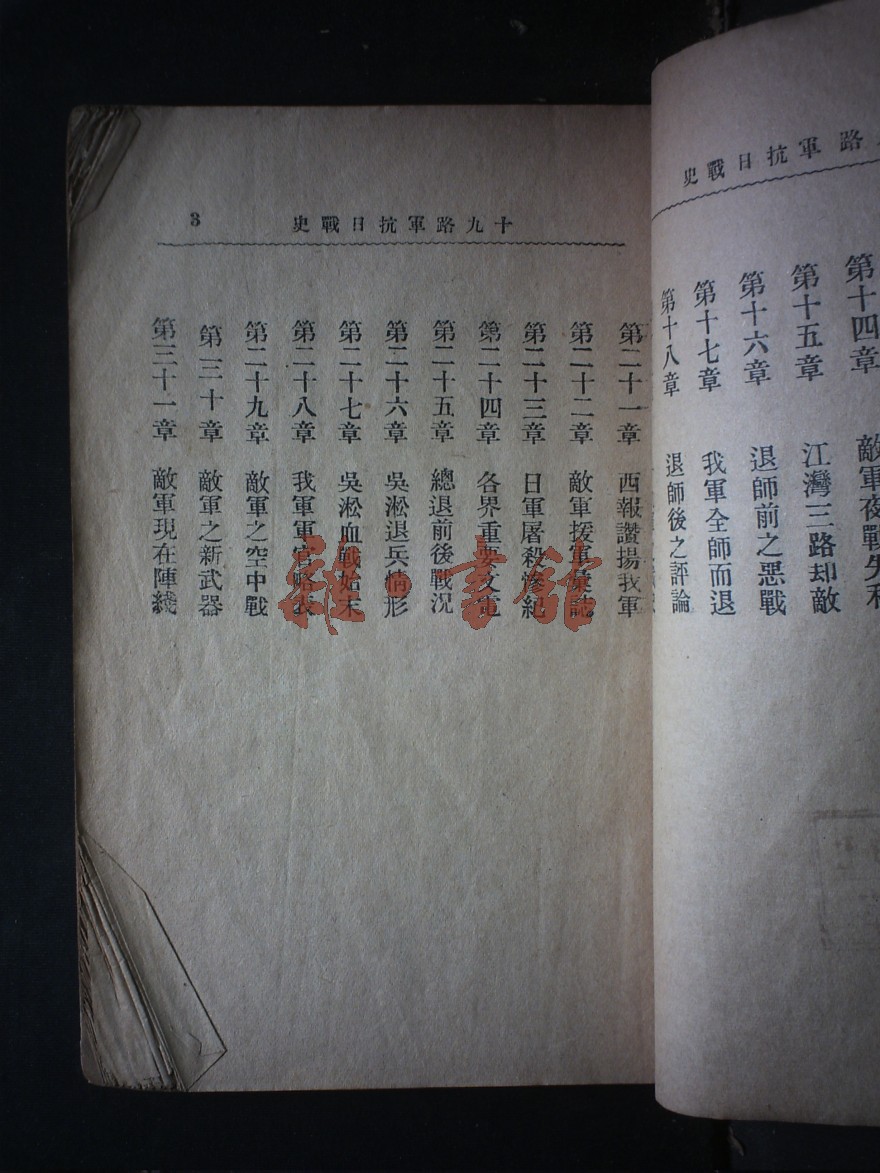 路軍抗日戰史
第十四章 敵軍夜戰失利
第十五章 江灣三路却敵
第十六章 退師前之惡戰
第十七章 我軍全師而退
第十八章 退師後之評論
十九路軍抗日戰史
3
第二十一章 西報讚揚我軍
第二十二章 敵軍援軍彙誌
第二十三章 日軍屠殺慘紀
第二十四章 各界重要文電
第二十五章 總退前後戰況
第二十六章 吳淞退兵情形
第二十七章 吳淞血戰始末
第二十八章 我軍軍官略表
第二十九章 敵軍之空中戰
第三十章 敵軍之新武器
第三十一章 敵軍現在陣綫
雜·書館